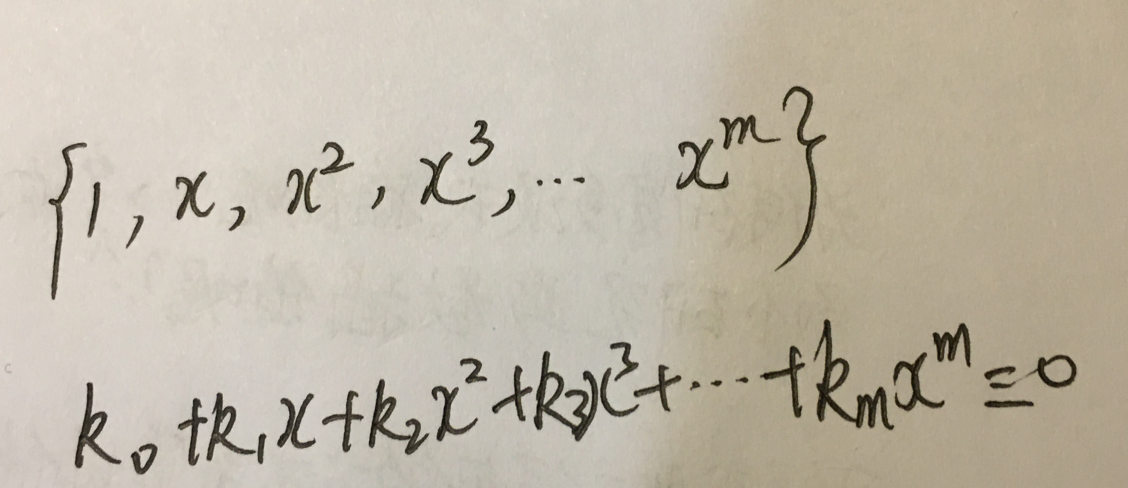 {1, x, x², x³, ... x^m}
k₀+k₁x+k₂x²+k₃x³+...+kₘx^m=0